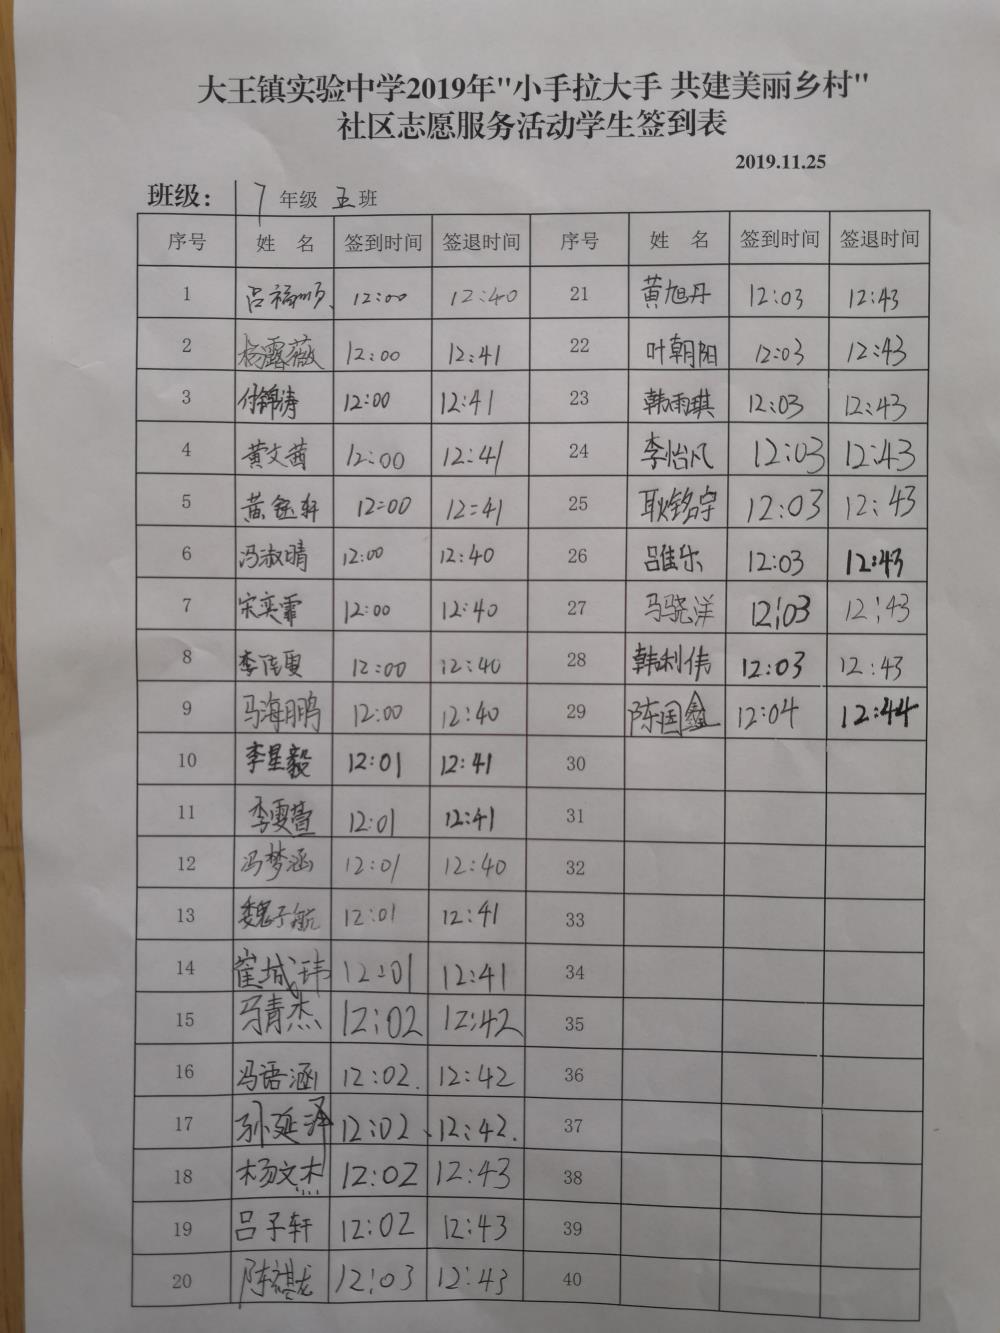 大王镇实验中学2019年"小手拉大手 共建美丽乡村"
社区志愿服务活动学生签到表
2019.11.25
班级： 7 年级 五 班
序号 姓 名 签到时间 签退时间 序号 姓 名 签到时间 签退时间
1 吕福顺 12:00 12:40 21 黄旭丹 12:03 12:43
2 杨露薇 12:00 12:41 22 叶朝阳 12:03 12:43
3 付锦涛 12:00 12:41 23 韩雨琪 12:03 12:43
4 黄文茜 12:00 12:41 24 李怡凡 12:03 12:43
5 黄钰轩 12:00 12:41 25 耿铭宇 12:03 12:43
6 冯淑晴 12:00 12:40 26 吕佳乐 12:03 12:43
7 宋奕霏 12:00 12:40 27 马骁洋 12:03 12:43
8 12:00 12:40 28 韩利伟 12:03 12:43
9 马海鹏 12:00 12:40 29 陈国鑫 12:04 12:44
10 李星毅 12:01 12:41 30
11 李雯萱 12:01 12:41 31
12 冯梦涵 12:01 12:40 32
13 魏子航 12:01 12:41 33
14 崔城玮 12:01 12:41 34
15 马青杰 12:02 12:42 35
16 冯语涵 12:02 12:42 36
17 孙延泽 12:02 12:42 37
18 杨文杰 12:02 12:43 38
19 吕子轩 12:02 12:43 39
20 陈祺龙 12:03 12:43 40